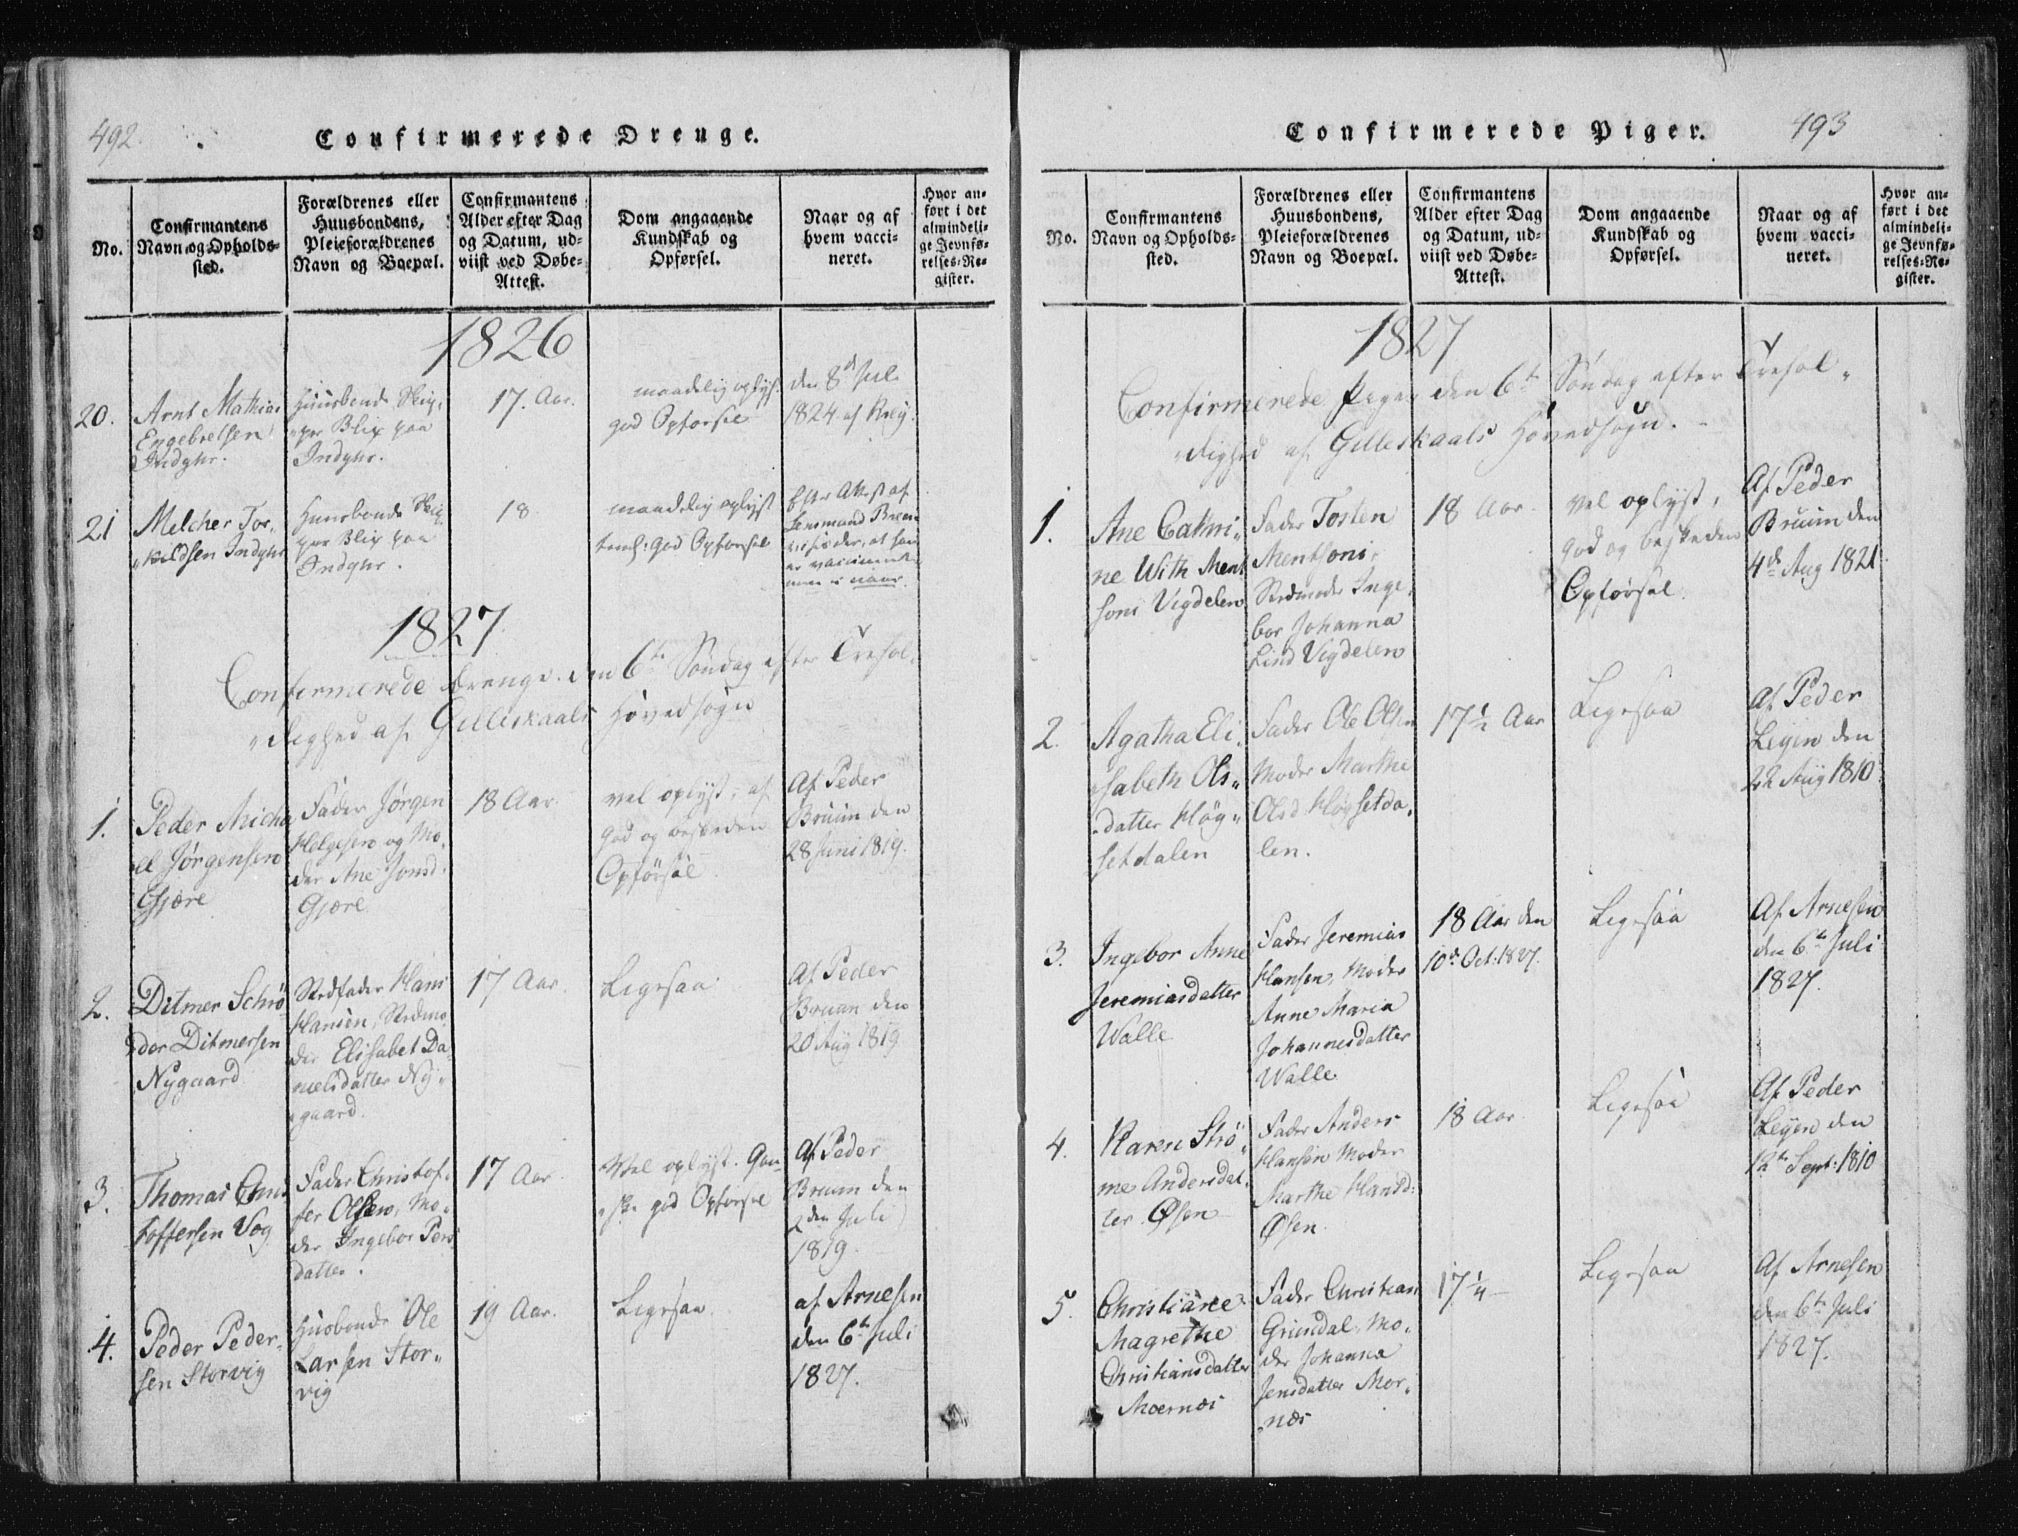 492.
Confirmerede Drenge.
No.
Confirmantens
Navn og Opholds-
sted.
Forældrenes eller
Huusbondens,
Pleieforældrenes
Navn og Boepæl.
Confirmantens
Alder efter Dag
og Datum, ud-
viist ved Døbe-
Attest.
Dom angaaende
Kundskab og
Opførsel.
Naar og af
hvem vacci-
neret.
Hvor an-
ført i det
almindeli-
ge Jevnfø-
relses-Re-
gister.
1826
20.
Arnt Mathias
Engebretsen
Indyhr.
Huusbonde Skip-
per Blix paa
Indyhr.
17. Aar.
maadelig oplyst
god Opførsel
den 8d Juli
1824 af
21
Melcher Tor-
kildsen Indyhr
Huusbonde Skip-
per Blix paa
Indyhr.
18
maadelig oplyst
god Opførsel
Efter Attest af
Lensmand
at han
er vaccineret
1827
Confirmerede Drenge den 6te Søndag efter Trefol-
dighed af Gilleskaals Hovedsogn
1.
Peder Micha
el Jørgensen
Gjære
Fader Jørgen
Helgesen og Mo-
der Ane Jonsd.
Gjære
18 Aar
vel oplyst, af
god og beskeden
Opførsel
Af Peder
Bruun den
28 Juni 1819.
2.
Ditmer Schrø
der Ditmersen
Nygaard
Stedfader Hans
Hansen, Stedmo
der Elisabet Da-
nielsdatter Ny-
gaard.
17 Aar.
Ligesaa
Af Peder
Bruun den
20 Aug 1819
3.
Thomas Chris
toffersen Vog
Fader Christof-
fer Olsen, Mo-
der Ingebor Pers
datter.
17 Aar
Vel oplyst. Gan-
ske god Opførsel
Af Peder
Bruun den
2den Juli
1819.
4.
Peder Peder-
sen Storvig
Husbonde Ole
Larsen Stor-
vig
19 Aar.
Ligesaa.
af Arnesen
den 6te Juli
1827.
Confirmerede Piger.
493
No.
Confirmantens
Navn og Opholds-
sted.
Forældrenes eller
Huusbondens,
Pleieforældrenes
Navn og Boepæl.
Confirmantens
Alder efter Dag
og Datum, ud-
viist ved Døbe-
Attest.
Dom angaaende
Kundskab og
Opførsel.
Naar og af
hvem vacci-
neret.
Hvor an-
ført i det
almindeli-
ge Jevnfø-
relses-Re-
gister.
1827
Confirmerede Piger den 6te Søndag efter Trefol-
dighed af Gilleskaals Hovedsogn.
1.
Ane Cathri-
ne With Ment
soni Vigdelen
Fader Tosten
Mentsoni,
Stedmoder Inge-
bor Johanna
Lind Vigdelen
18 Aar.
vel oplyst,
god og beskeden
Opførsel.
Af Peder
Bruun den
4de Aug 1821
2.
Agatha Eli-
sabeth Ols-
datter Høg-
setdalen
Fader Ole Olsen
Moder Marthe
Olsd. Høgsetda-
len.
17½ Aar
Ligesaa
Af Peder
Leyen den
22 Aug 1810
3.
Ingebor Anne
Jeremiasdatter
Walle
Fader Jeremias
Hansen, Moder
Anne Maria
Johannesdatter
Walle
18 Aar den
10de Oct. 1827.
Ligesaa
Af Arnesen
den 6te Juli
1827.
4.
Karen Strø-
me Andersdat-
ter Øsen
Fader Anders
Hansen Moder
Marthe Hansd.
Øsen.
18 Aar.
Ligesaa
Af Peder
Leyen den
12te Sept: 1810
5.
Christiane
Magrethe
Christiansdatter
Moernæs
Fader Christian
Grundal, Mo-
der Johanna
Jensdatter Mor-
næs
17¼
Ligesaa
Af Arnesen
den 6te Juli
1827.